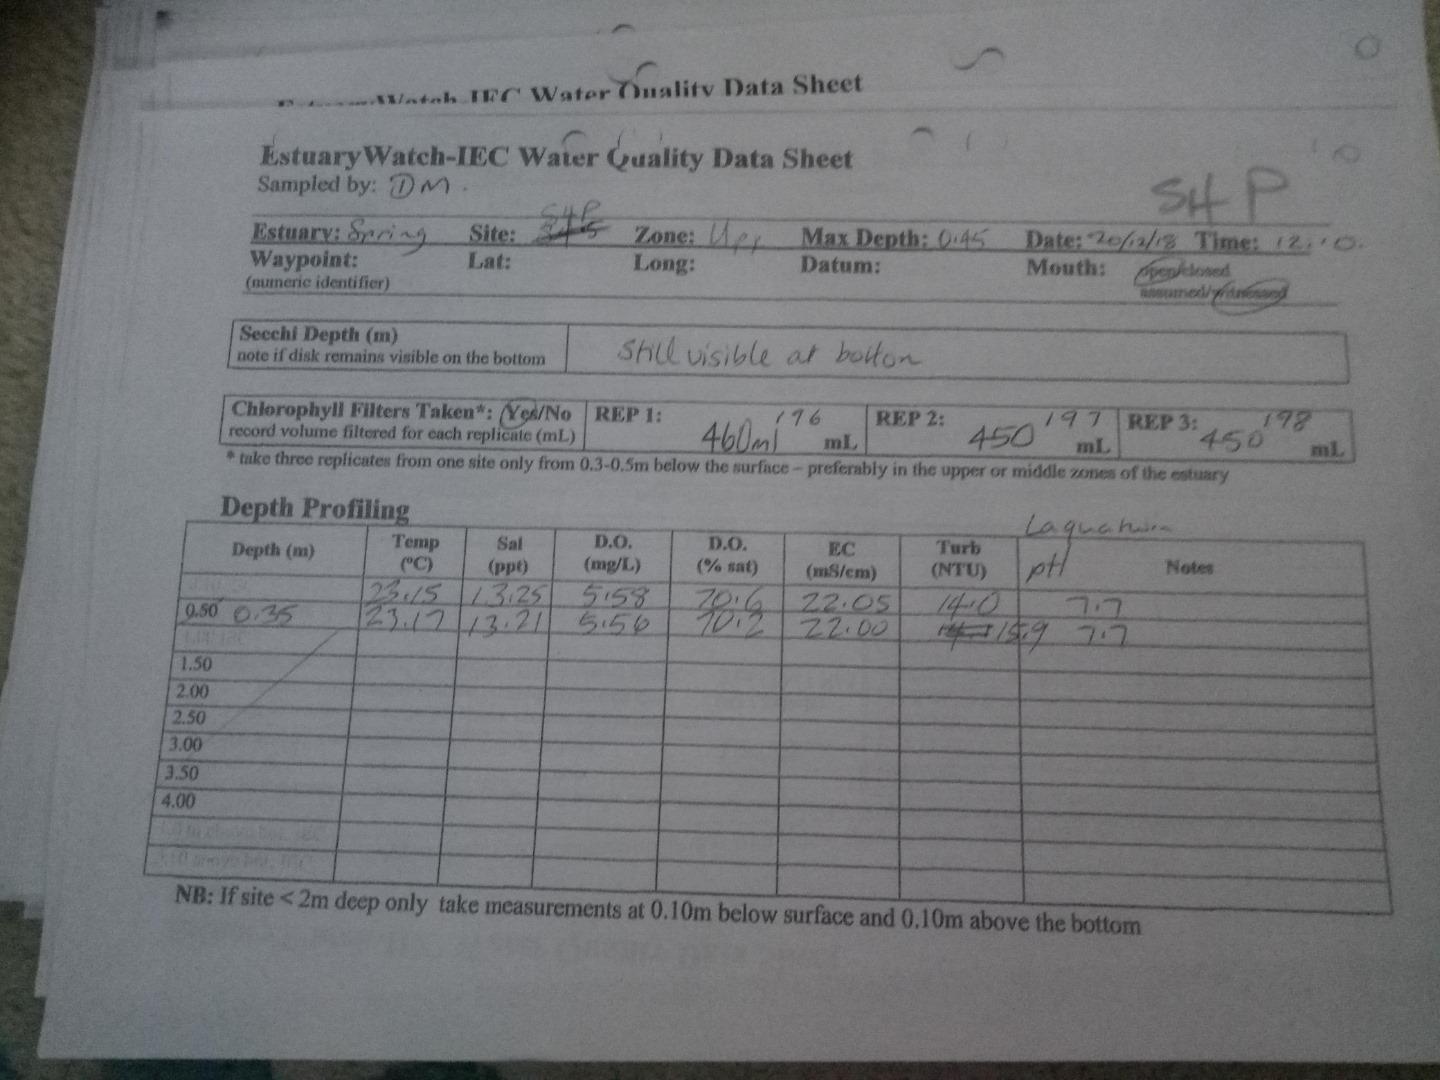 IEC Water Quality Data Sheet
EstuaryWatch-IEC Water Quality Data Sheet
Sampled by: DM.
S4P
S4P
Estuary: Spring Site: Zone: Upp Max Depth: 0.45 Date: 20/12/18 Time:
Waypoint: Lat: Long: Datum: Mouth: open/closed
(numeric identifier) assumed/witnessed
Secchi Depth (m)
note if disk remains visible on the bottom
Still visible at botton
Chlorophyll Filters Taken*: Yes/No REP 1: 196 REP 2: 197 REP 3: 198
record volume filtered for each replicate (mL) 460ml mL 450 mL 450 mL
* take three replicates from one site only from 0.3-0.5m below the surface – preferably in the upper or middle zones of the estuary
Depth Profiling
Depth (m) Temp Sal D.O. D.O. EC Turb pH Notes
(°C) (ppt) (mg/L) (% sat) (mS/cm) (NTU)
23.15 13.25 5.58 70.6 22.05 14.0 7.7
0.50 0.35 23.17 13.21 5.56 70.2 22.00 15.9 7.7
1.50
2.00
2.50
3.00
3.50
4.00
NB: If site < 2m deep only take measurements at 0.10m below surface and 0.10m above the bottom